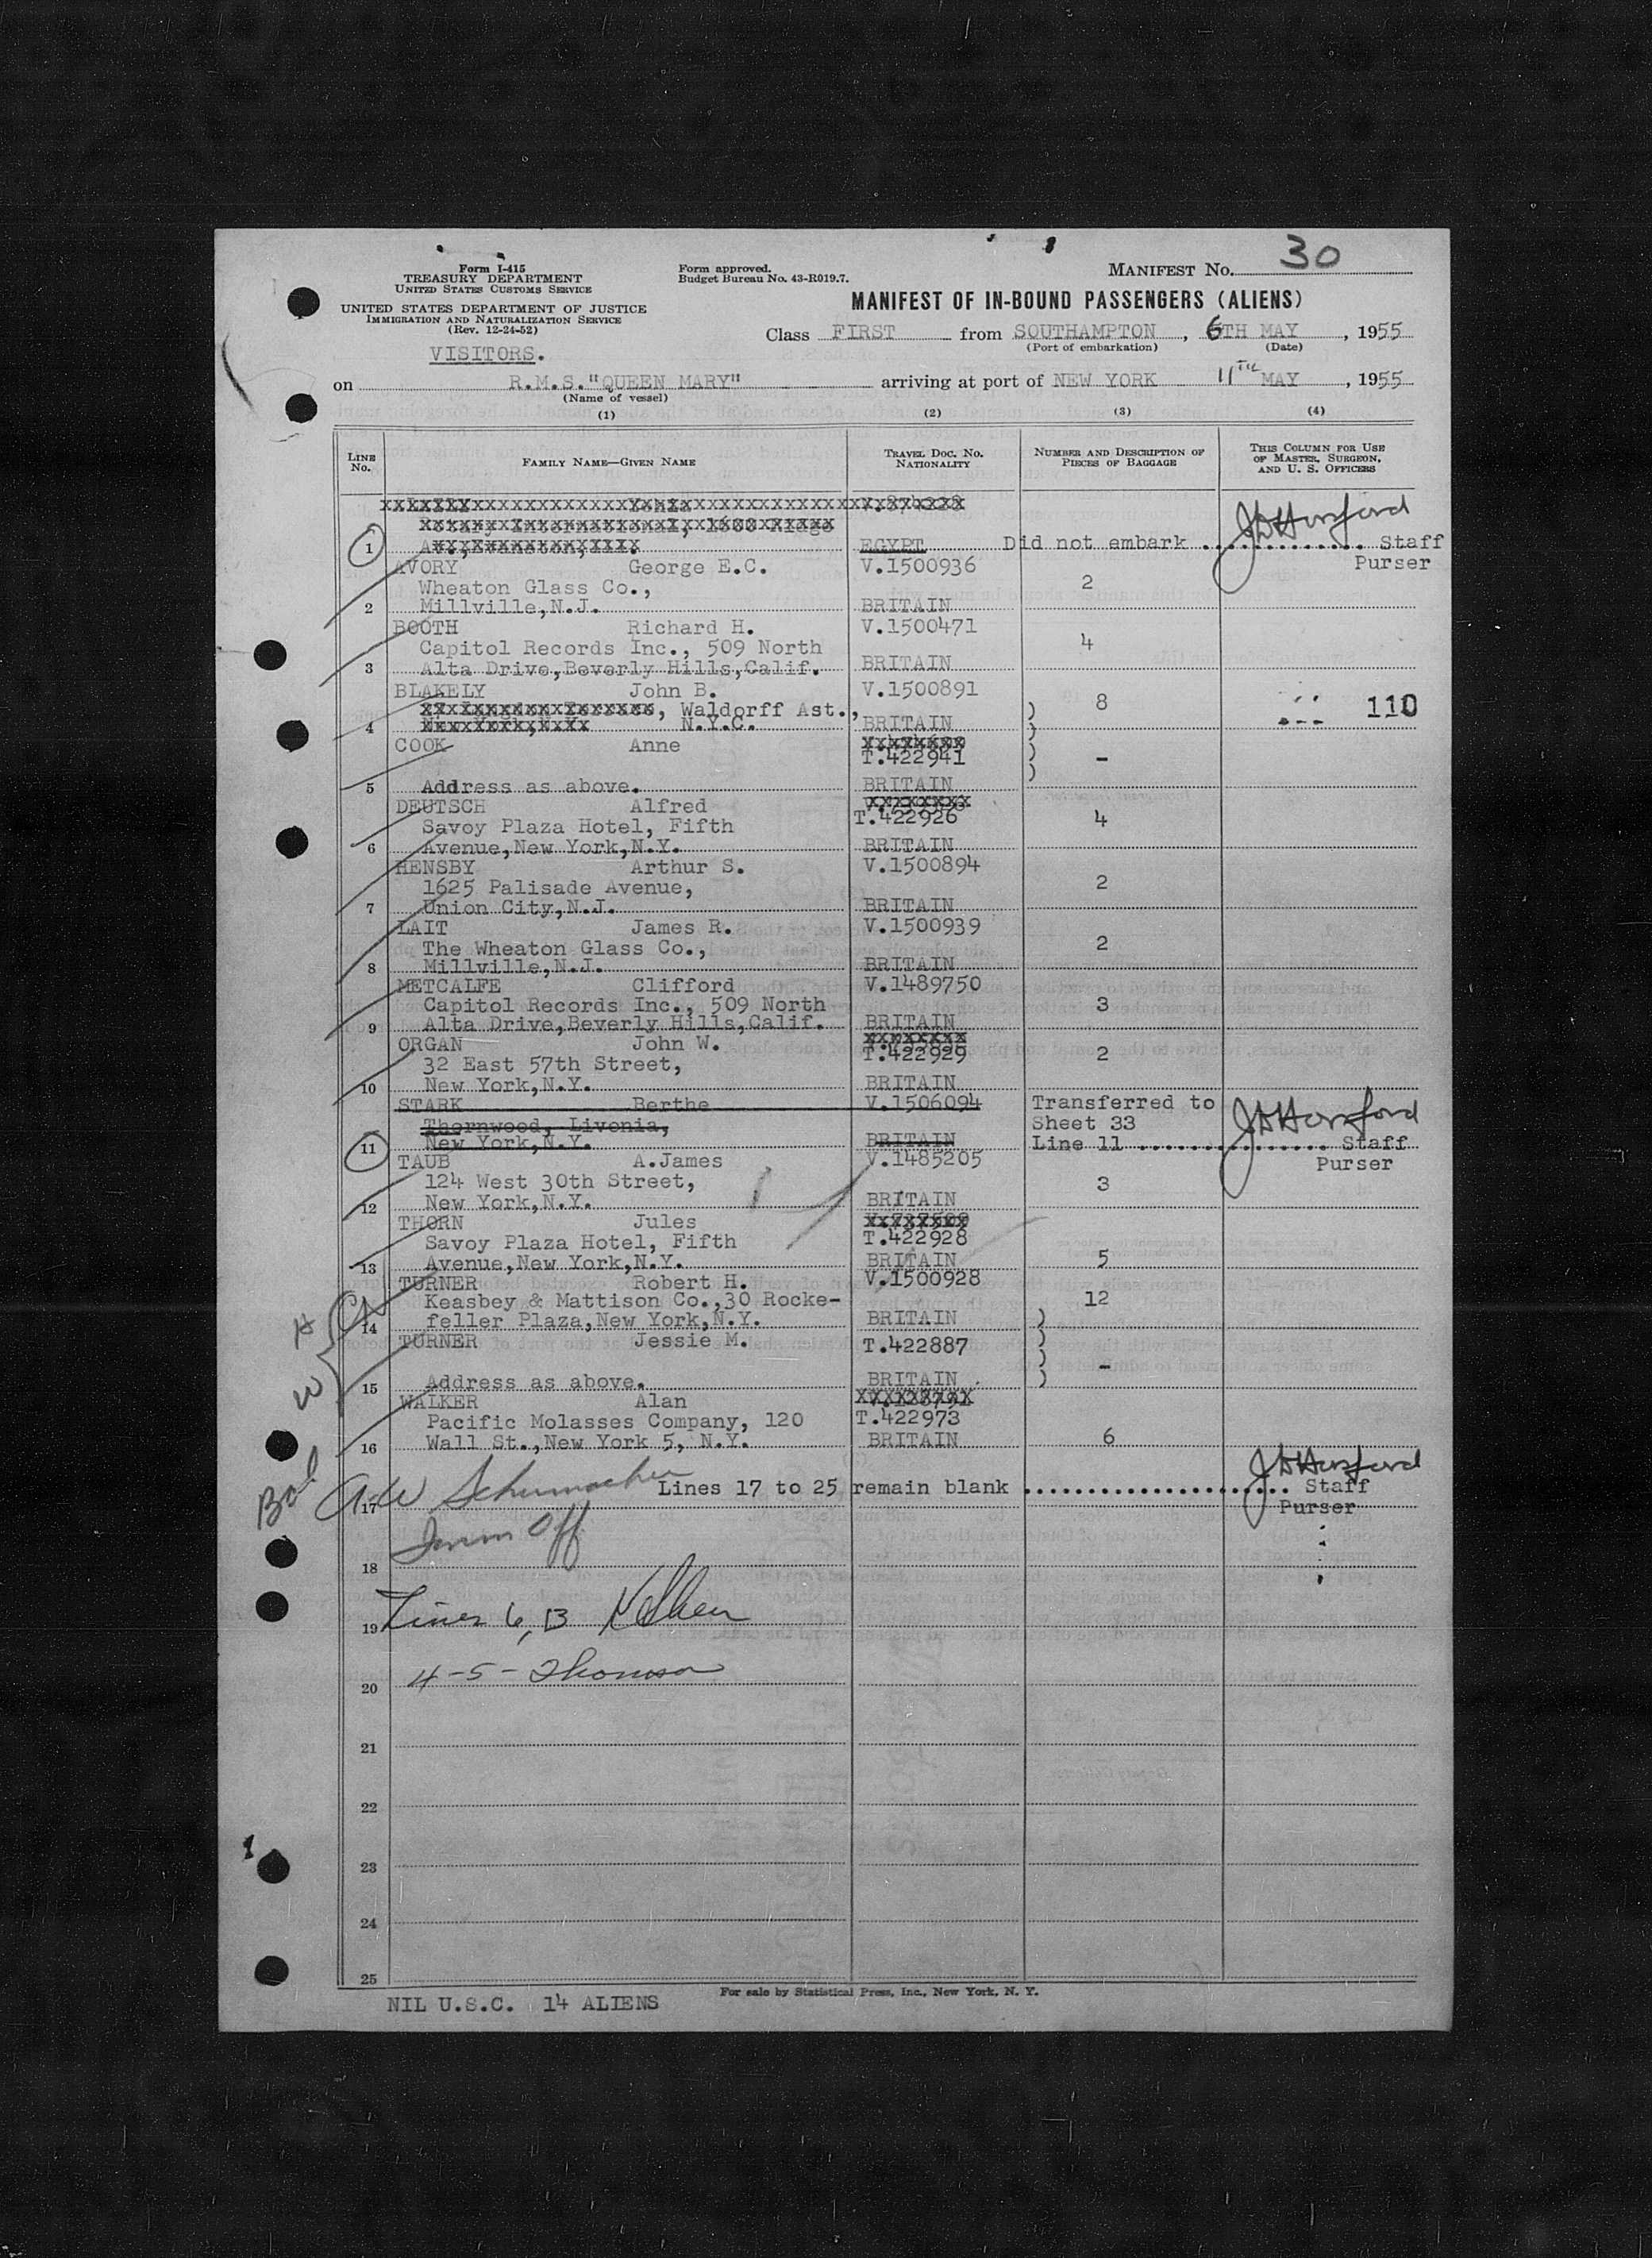 Form I-415
TREASURY DEPARTMENT
UNITED STATES CUSTOMS SERVICE
UNITED STATES DEPARTMENT OF JUSTICE
IMMIGRATION AND NATURALIZATION SERVICE
(Rev. 12-24-52)
VISITORS.
Form approved.
Budget Bureau No. 43-R019.7.
MANIFEST NO. 30
MANIFEST OF IN-BOUND PASSENGERS (ALIENS)
Class FIRST from SOUTHAMPTON, 6TH MAY, 1955
(Port of embarkation) (Date)
on R.M.S."QUEEN MARY" arriving at port of NEW YORK 11TH MAY, 1955
(Name of vessel)
(1) (2) (3) (4)
LINE NO. FAMILY NAME—GIVEN NAME TRAVEL DOC. NO. NATIONALITY NUMBER AND DESCRIPTION OF PIECES OF BAGGAGE THIS COLUMN FOR USE OF MASTER, SURGEON, AND U. S. OFFICERS
1 EGYPT Did not embark .............. Staff
Purser
AVORY George E.C. V.1500936
Wheaton Glass Co., 2
2 Millville,N.J. BRITAIN
BOOTH Richard H. V.1500471
Capitol Records Inc., 509 North 4
3 Alta Drive,Beverly Hills,Calif. BRITAIN
BLAKELY John B. V.1500891
, Waldorff Ast., ) 8 110
4 N.Y.C. BRITAIN )
COOK Anne )
T.422941 ) -
5 Address as above. BRITAIN
DEUTSCH Alfred
Savoy Plaza Hotel, Fifth T.422926 4
6 Avenue,New York,N.Y. BRITAIN
HENSBY Arthur S. V.1500894
1625 Palisade Avenue, 2
7 Union City,N.J. BRITAIN
LAIT James R. V.1500939
The Wheaton Glass Co., 2
8 Millville,N.J. BRITAIN
METCALFE Clifford V.1489750
Capitol Records Inc., 509 North 3
9 Alta Drive,Beverly Hills,Calif. BRITAIN
ORGAN John W. T.422929 2
32 East 57th Street,
10 New York,N.Y. BRITAIN
STARK Berthe V.1506094 Transferred to
Thornwood, Livonia, Sheet 33
11 New York,N.Y. BRITAIN Line 11 .................. Staff
Purser
TAUB A.James V.1485205
124 West 30th Street, 3
12 New York,N.Y. BRITAIN
THORN Jules
Savoy Plaza Hotel, Fifth T.422928
13 Avenue,New York,N.Y. BRITAIN 5
TURNER Robert H. V.1500928
Keasbey & Mattison Co.,30 Rocke- 12
14 feller Plaza,New York,N.Y. BRITAIN )
TURNER Jessie M. T.422887 )
) -
15 Address as above. BRITAIN )
WALKER Alan
Pacific Molasses Company, 120 T.422973
16 Wall St.,New York 5, N.Y. BRITAIN 6
A-W Schumacher
17 Lines 17 to 25 remain blank ...................... Staff
Purser
Imm Off
18
19 Lines 6, 13
4-5- Thomson
20
21
22
23
24
25
NIL U.S.C. 14 ALIENS
For sale by Statistical Press, Inc., New York, N. Y.